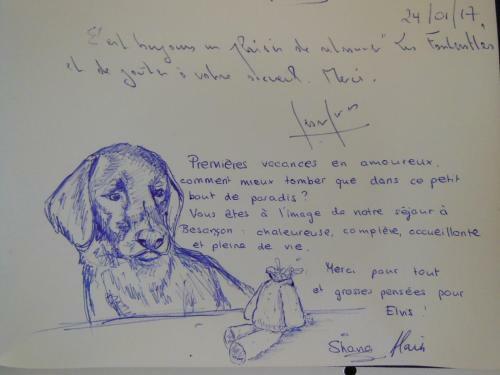 24/01/17,
C'est toujours un plaisir de
et de goûter à votre accueil. Merci.
Premières vacances en amoureux,
comment mieux tomber que dans ce petit
bout de paradis ?
Vous êtes à l'image de notre séjour à
Besançon : chaleureuse, complère, accueillante
et pleine de vie.
Merci pour tout
et grosses pensées pour
Elvis !
Shana